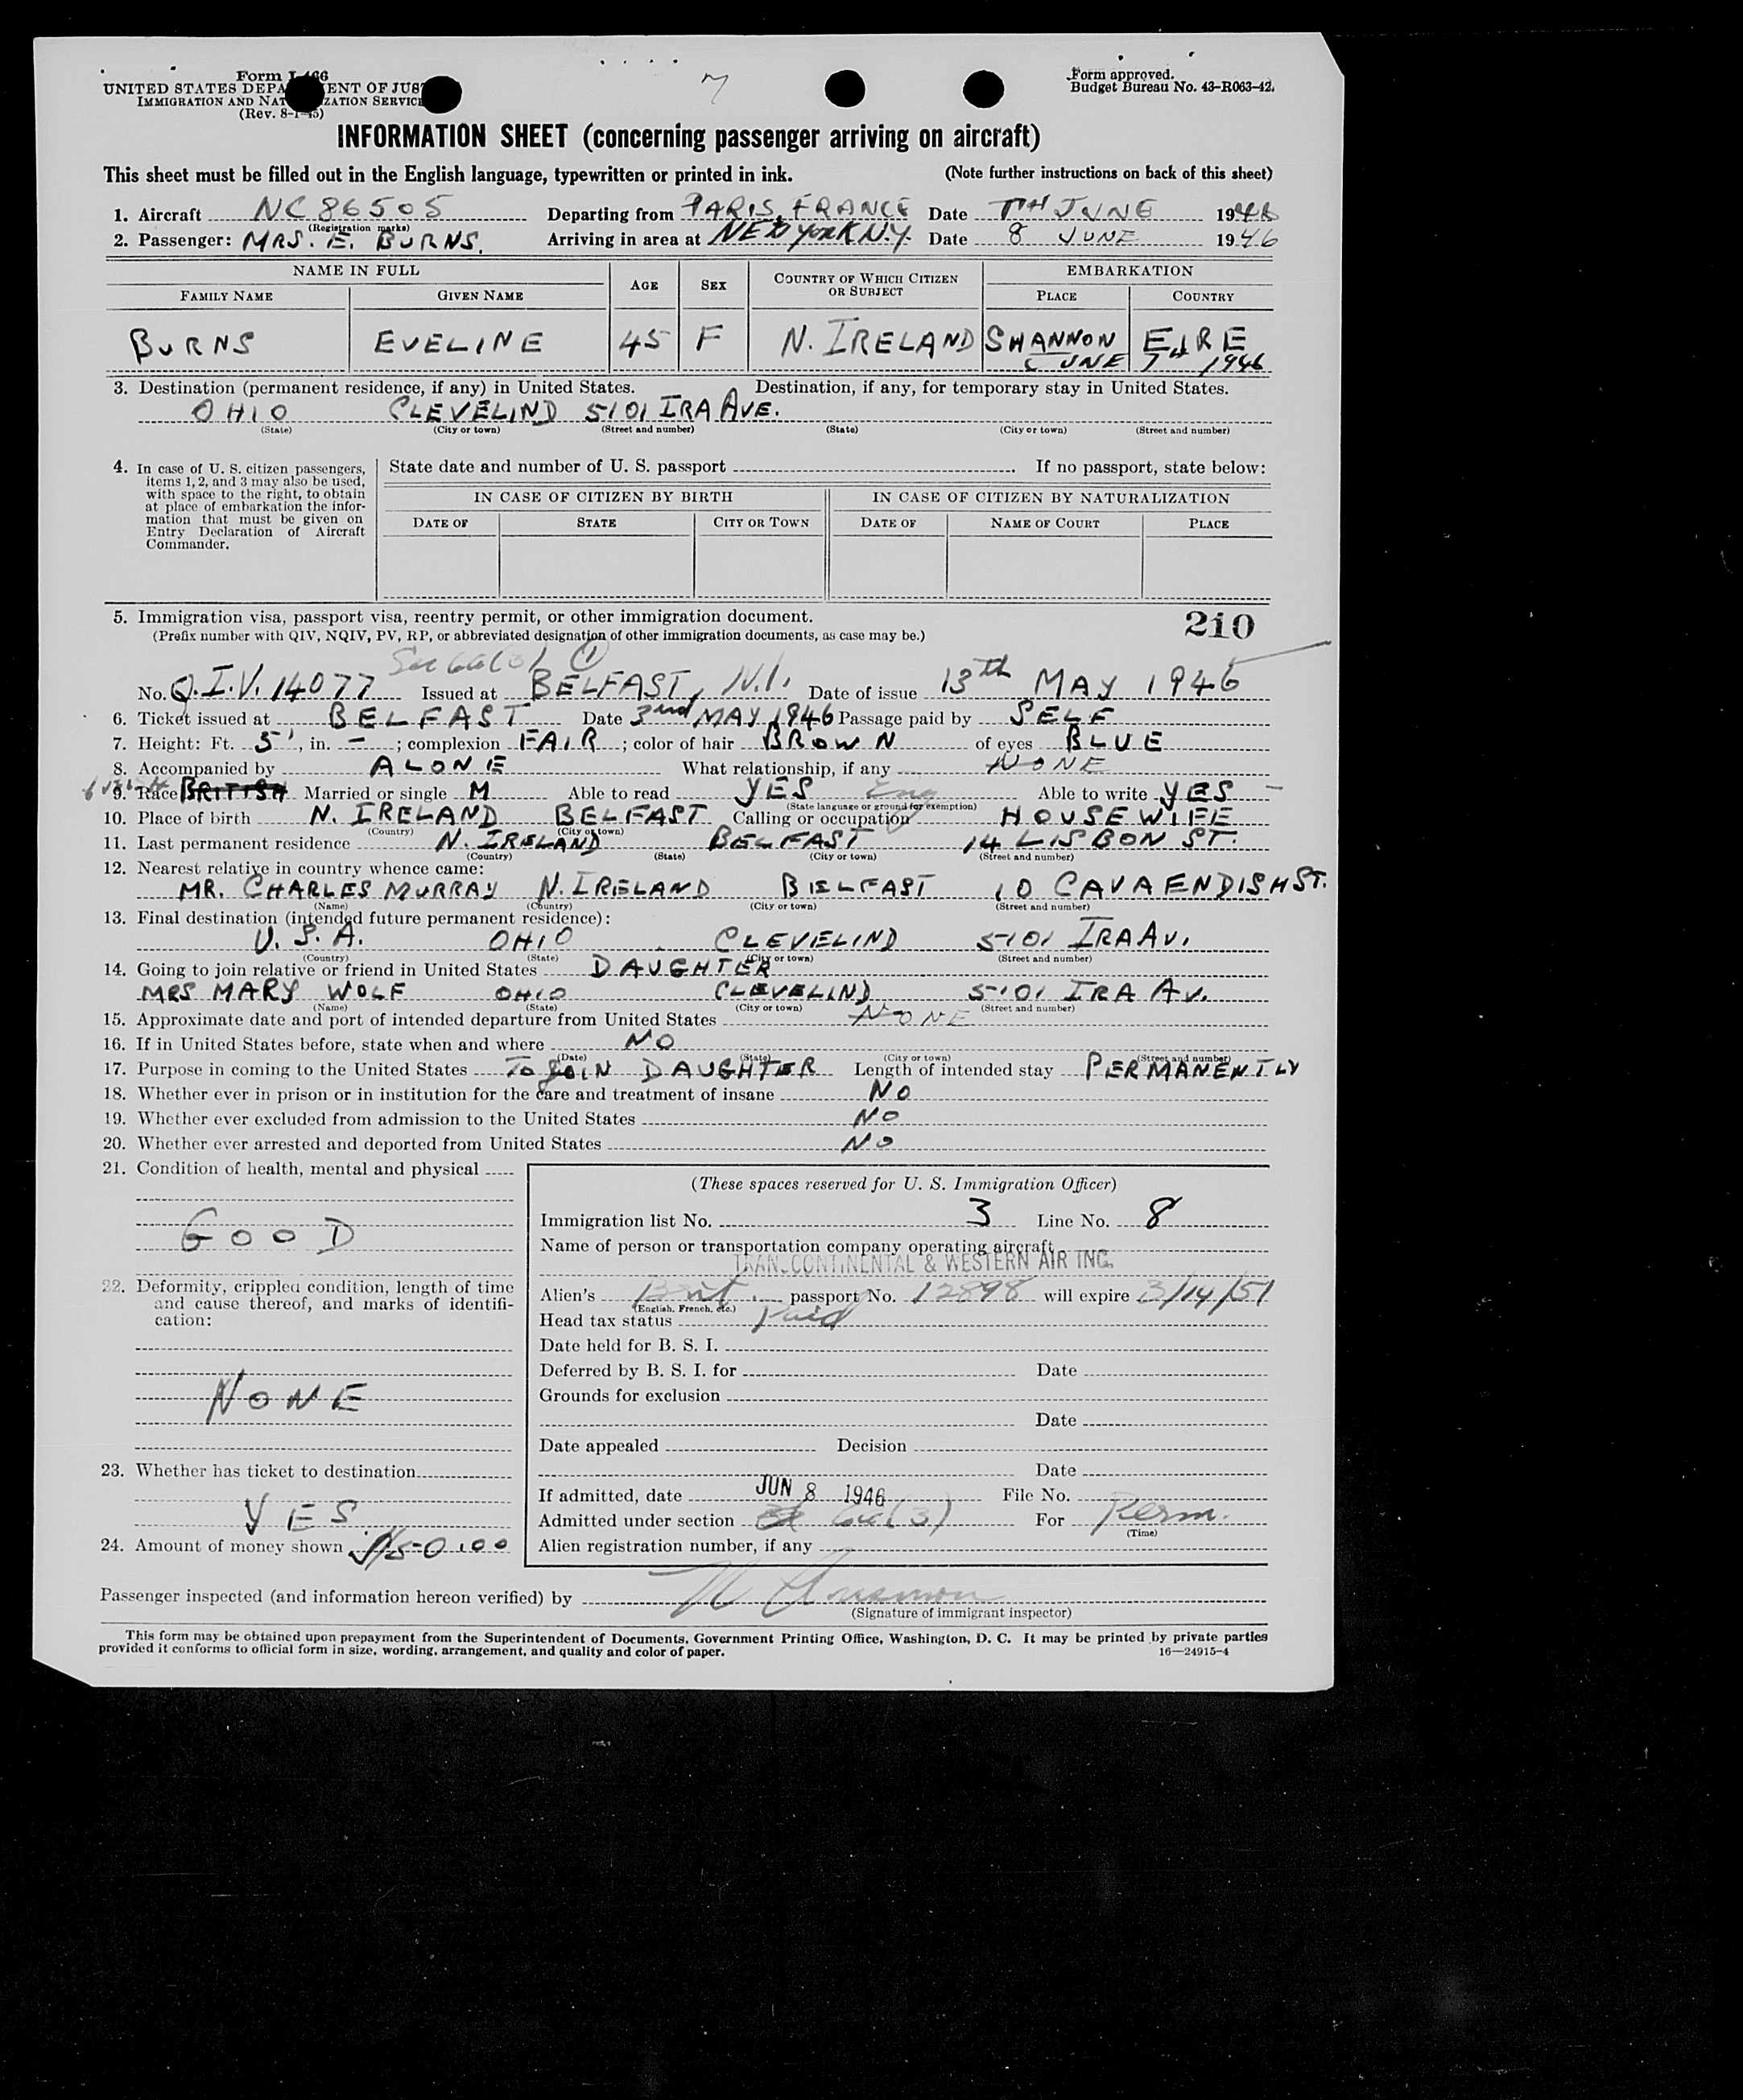 Form I-466
UNITED STATES DEPARTMENT OF JUS
IMMIGRATION AND NATURALIZATION SERVICE
(Rev. 8-1-45)
Form approved.
Budget Bureau No. 43-R063-42.
INFORMATION SHEET (concerning passenger arriving on aircraft)
This sheet must be filled out in the English language, typewritten or printed in ink. (Note further instructions on back of this sheet)
1. Aircraft NC 86505 Departing from PARIS, FRANCE Date 7TH JUNE 1946
(Registration marks)
2. Passenger: MRS. E. BURNS. Arriving in area at NEW YORK N.Y. Date 8 JUNE 1946
NAME IN FULL AGE SEX COUNTRY OF WHICH CITIZEN OR SUBJECT EMBARKATION
FAMILY NAME GIVEN NAME PLACE COUNTRY
BURNS EVELINE 45 F N. IRELAND SHANNON EIRE
JUNE 7TH 1946
3. Destination (permanent residence, if any) in United States. Destination, if any, for temporary stay in United States.
OHIO CLEVELIND 5101 IRA AVE.
(State) (City or town) (Street and number) (State) (City or town) (Street and number)
4. In case of U. S. citizen passengers, items 1, 2, and 3 may also be used, with space to the right, to obtain at place of embarkation the information that must be given on Entry Declaration of Aircraft Commander.
State date and number of U. S. passport . If no passport, state below:
IN CASE OF CITIZEN BY BIRTH IN CASE OF CITIZEN BY NATURALIZATION
DATE OF STATE CITY OR TOWN DATE OF NAME OF COURT PLACE
5. Immigration visa, passport visa, reentry permit, or other immigration document. 210
(Prefix number with QIV, NQIV, PV, RP, or abbreviated designation of other immigration documents, as case may be.)
Sec 6a(3) 1
No. Q.I.V. 14077 Issued at BELFAST, N.I. Date of issue 13th MAY 1946
6. Ticket issued at BELFAST Date 3nd MAY 1946 Passage paid by SELF
7. Height: Ft. 5', in. – ; complexion FAIR ; color of hair BROWN of eyes BLUE
8. Accompanied by ALONE What relationship, if any NONE
9. Race BRITISH Married or single M Able to read YES Eng Able to write YES
(State language or ground for exemption)
10. Place of birth N. IRELAND BELFAST Calling or occupation HOUSEWIFE
(Country) (City or town)
11. Last permanent residence N. IRELAND BELFAST 14 LISBON ST.
(Country) (State) (City or town) (Street and number)
12. Nearest relative in country whence came:
MR. CHARLES MURRAY N. IRELAND BELFAST 10 CAVAENDISH ST.
(Name) (Country) (City or town) (Street and number)
13. Final destination (intended future permanent residence):
U. S. A. OHIO CLEVELIND 5101 IRA AV.
(Country) (State) (City or town) (Street and number)
14. Going to join relative or friend in United States DAUGHTER
MRS MARY WOLF OHIO CLEVELIND 5101 IRA AV.
(Name) (State) (City or town) (Street and number)
15. Approximate date and port of intended departure from United States NONE
16. If in United States before, state when and where NO
(Date) (State) (City or town) (Street and number)
17. Purpose in coming to the United States TO JOIN DAUGHTER Length of intended stay PERMANENTLY
18. Whether ever in prison or in institution for the care and treatment of insane NO
19. Whether ever excluded from admission to the United States NO
20. Whether ever arrested and deported from United States NO
21. Condition of health, mental and physical
GOOD
22. Deformity, crippled condition, length of time and cause thereof, and marks of identification:
NONE
23. Whether has ticket to destination
YES.
24. Amount of money shown $150.00
(These spaces reserved for U. S. Immigration Officer)
Immigration list No. 3 Line No. 8
Name of person or transportation company operating aircraft
TRANSCONTINENTAL & WESTERN AIR INC.
Alien's Brit. passport No. 12898 will expire 3/14/51
(English, French, etc.)
Head tax status Paid
Date held for B. S. I.
Deferred by B. S. I. for Date
Grounds for exclusion
Date
Date appealed Decision
Date
If admitted, date JUN 8 1946 File No.
Admitted under section 6a(3) For Perm.
(Time)
Alien registration number, if any
Passenger inspected (and information hereon verified) by
(Signature of immigrant inspector)
This form may be obtained upon prepayment from the Superintendent of Documents, Government Printing Office, Washington, D. C. It may be printed by private parties
provided it conforms to official form in size, wording, arrangement, and quality and color of paper. 16—24915-4